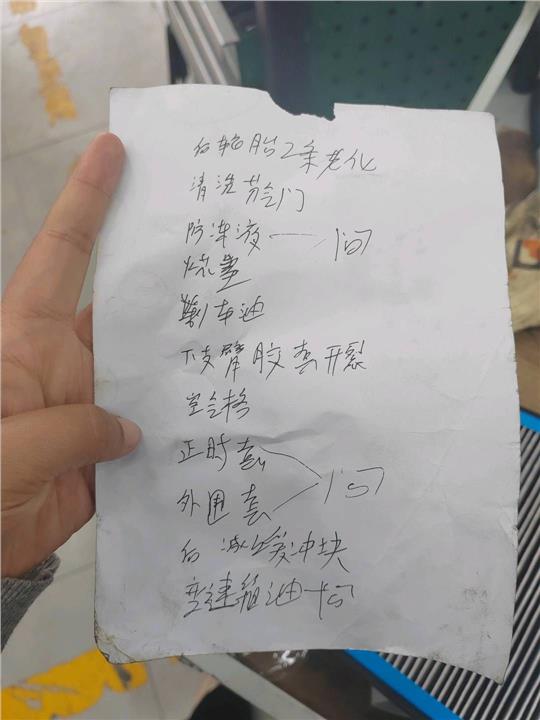 后轮胎2条老化
清洗节气门
防冻液——问
火花塞
刹车油
下支臂胶套开裂
空气格
正时套
外围套 问
后减震缓冲块
变速箱油—问